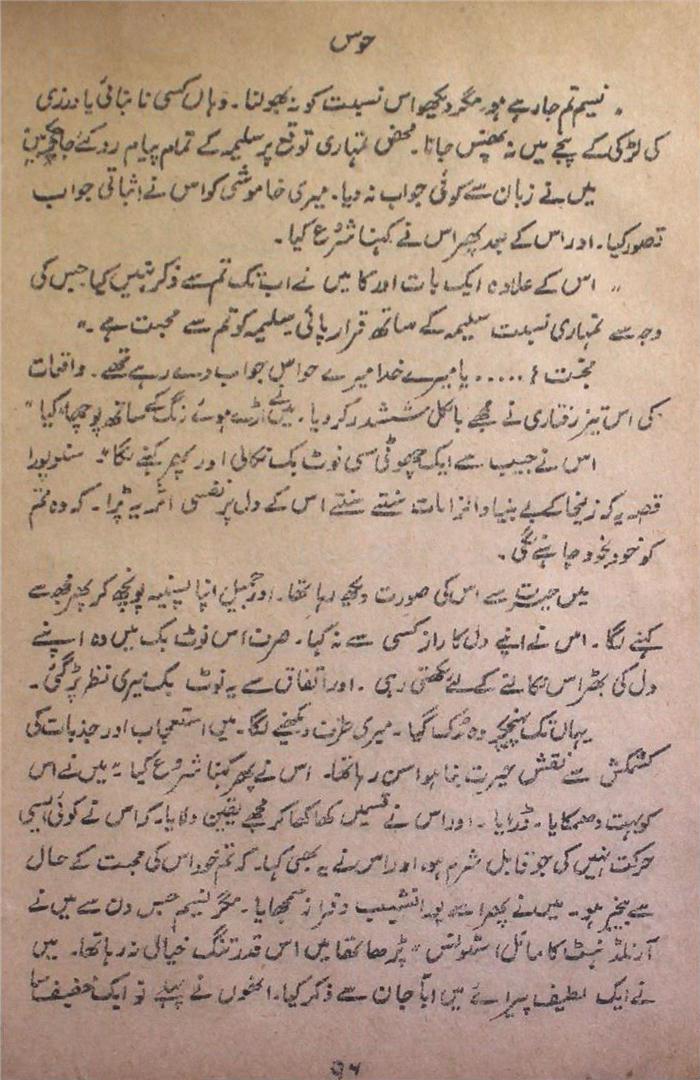 ہوس
„ نسیم تم جا رہے ہو۔ مگر دیکھو اس نسبت کو نہ بھولنا۔ وہاں کسی نانبائی یا درزی
کی لڑکی کے پنجے میں نہ پھنس جانا۔ محض تمہاری توقع پر سلیمہ کے تمام پیام رد کئے جا چکے ہیں
میں نے زبان سے کوئی جواب نہ دیا۔ میری خاموشی کو اس نے اثباتی جواب
تصور کیا۔ اور اس کے بعد پھر اس نے کہنا شروع کیا۔
„ اس کے علاوہ ایک بات اور کا میں نے اب تک تم سے ذکر نہیں کیا جس کی
وجہ سے تمہاری نسبت سلیمہ کے ساتھ قرار پائی سلیمہ کو تم سے محبت ہے۔"
محبت! ..... یا میرے خدا میرے حواس جواب دے رہے تھے۔ واقعات
کی اس تیز رفتاری نے مجھے بالکل ششدر کر دیا۔ میں نے اڑے ہوئے رنگ کے ساتھ پوچھا کیا"
اس نے جیب سے ایک چھوٹی سی نوٹ بک نکالی اور پھر کہنے لگا۔ سنو پورا
قصہ یہ کہ زلیخا کے بے بنیاد الزامات سنتے سنتے اس کے دل پر نفسی اثر یہ پڑا۔ کہ وہ تم
کو خود بخود چاہنے لگی۔
میں حیرت سے اس کی صورت دیکھ رہا تھا۔ اور جمیل اپنا پسینہ پونچھ کر پھر مجھ سے
کہنے لگا۔ اس نے اپنے دل کا راز کسی سے نہ کہا۔ صرف اس نوٹ بک میں وہ اپنے
دل کی بھڑاس نکالنے کے لئے لکھتی رہی۔ اور اتفاق سے یہ نوٹ بک میری نظر پڑ گئی۔
یہاں تک پہنچکر وہ رک گیا۔ میری طرف دیکھنے لگا۔ میں استعجاب اور جذبات کی
کشمکش سے نقش حیرت بنا ہوا سن رہا تھا۔ اس نے پھر کہنا شروع کیا „ میں نے اس
کو بہت دھمکایا۔ ڈرایا۔ اور اس نے قسمیں کھا کھا کر مجھے یقین دلایا۔ کہ اس نے کوئی ایسی
حرکت نہیں کی جو قابل شرم ہو، اور اس نے یہ بھی کہا۔ کہ تم خود اس کی محبت کے حال
سے بیخبر ہو۔ میں نے پھر اسے پورا نشیب و فراز سمجھایا۔ مگر نسیم جس دن سے میں نے
آرنلڈ بنٹ کا پڑھا تھا میں اس قدر تنگ خیال نہ رہا تھا۔ میں
نے ایک لطیف پیرائے میں ابا جان سے ذکر کیا۔ انھوں نے پہلے تو ایک خفیف سا